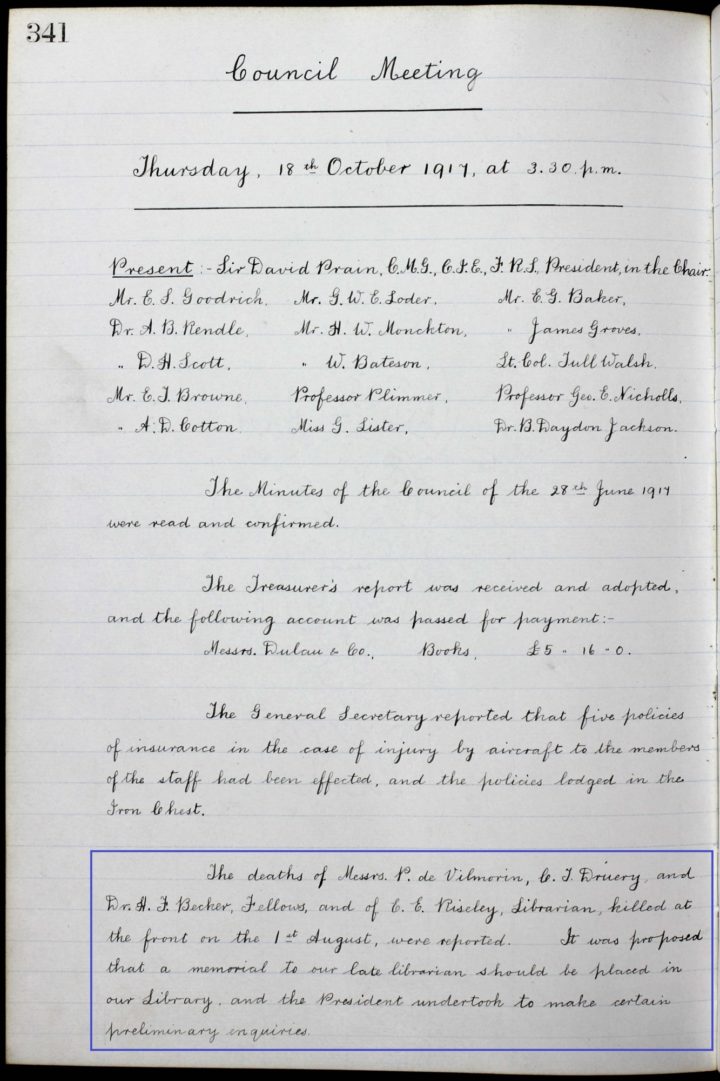 341
Council Meeting
Thursday, 18th October 1917, at 3.30.p.m.
Present :- Sir David Prain, C.M.G., C.I.E., F.R.S., President, in the Chair.
Mr. E. S. Goodrich, Mr. G. W. E. Loder, Mr. E. G. Baker,
Dr. A. B. Rendle, Mr. H. W. Monckton, " James Groves,
" D. H. Scott, " W. Bateson, Lt. Col. Tull Walsh,
Mr. E. T. Browne, Professor Plimmer, Professor Geo. E. Nicholls,
" A. D. Cotton Miss G. Lister, Dr. B. Daydon Jackson.
The Minutes of the Council of the 28th June 1917
were read and confirmed.
The Treasurer's report was received and adopted,
and the following account was passed for payment:-
Messrs. Dulau & Co., Books, £5 - 16 - 0.
The General Secretary reported that five policies
of insurance in the case of injury by aircraft to the members
of the staff had been effected, and the policies lodged in the
Iron Chest.
The deaths of Messrs. P. de Vilmorin, C. T. Druery, and
Dr. H. F. Becker, Fellows, and of C. E. Riseley, Librarian, killed at
the front on the 1st August, were reported. It was proposed
that a memorial to our late librarian should be placed in
our Library, and the President undertook to make certain
preliminary enquiries.